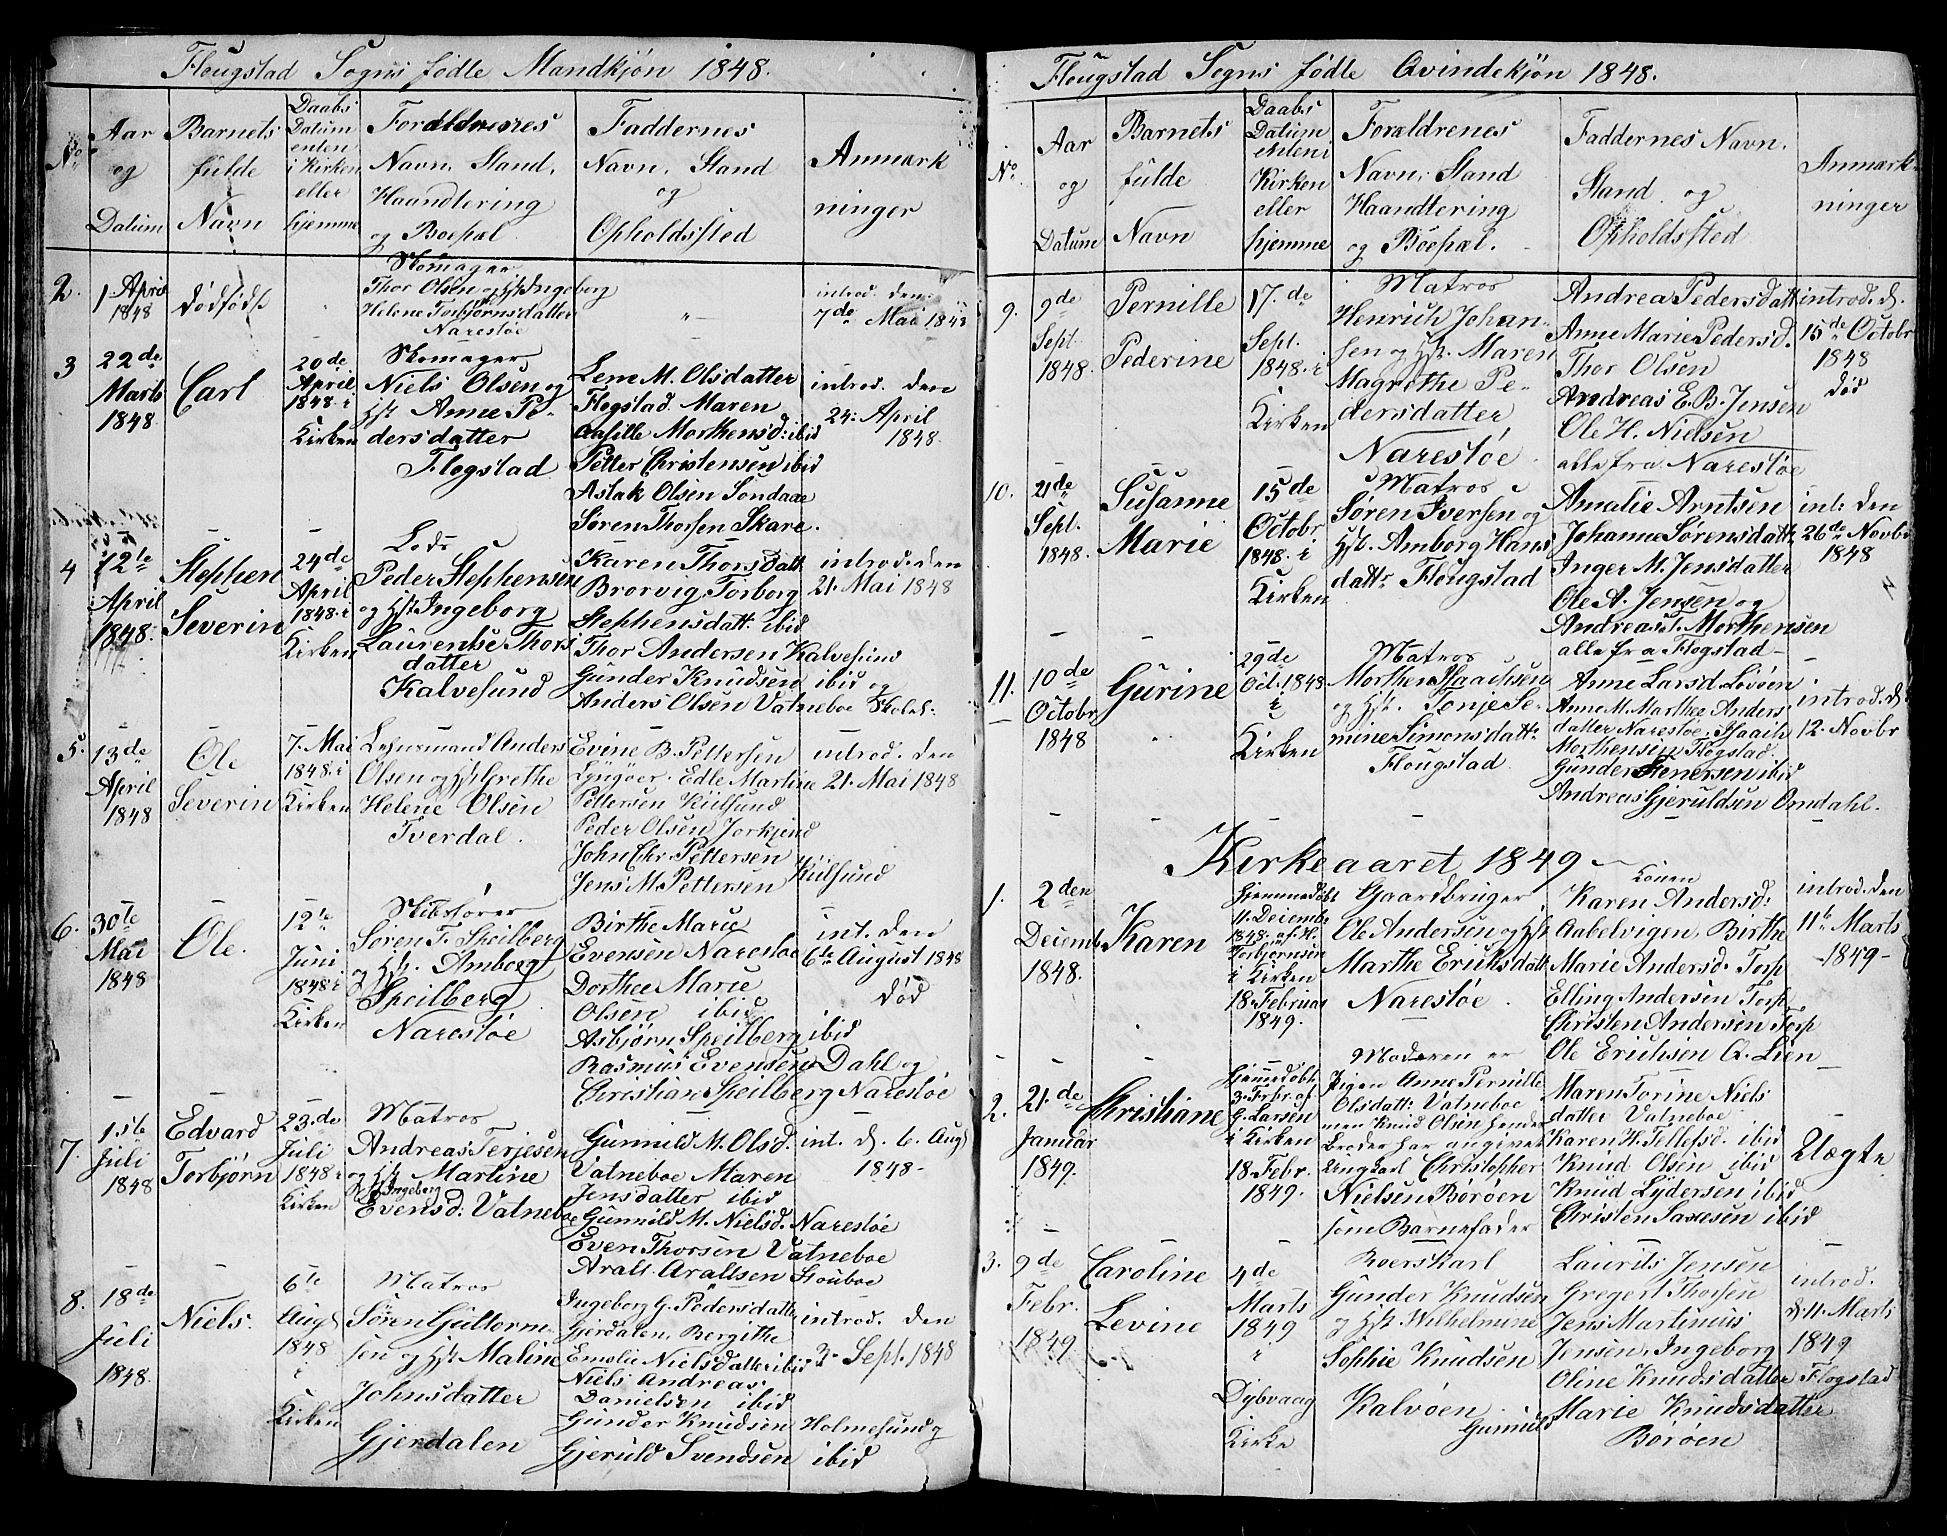 Flougstad Sogns fødte Mandkjøn 1848.
No.
Aar
og
Datum
Barnets
fulde
Navn
Daabs
Datum
enten
i Kirken
eller
hjemme
Foreldrenes
Navn, Stand,
Haandtering
og Boepæl.
Faddernes
Navn, Stand
og
Opholdssted
Anmærk
ninger
2.
1. April
1848
Dødfødt
Skomager
Thor Olsen og Hst Ingeborg
Helene Torbjørnsdatter
Narestøe
"
introd. den
7de Mai 1848
3
22de
Marts
1848
Carl
20de
April
1848 i
Kirken
Skomager
Niels Olsen og
Hst Anne Pe-
dersdatter
Flogstad
Lene M. Olsdatter
Flogstad. Maren
Morthensd: ibid
Petter Christensen ibid
Aslak Olsen Søndaae
Søren Thorsen Skare.
introd. den
24. April
1848.
4
12te
April
1848.
Stephen
Severin
24de
April
1848 i
Kirken
Lods
Peder Stephensen
og Hst Ingeborg
Laurentse Thors
datter
Kalvesund
Karen Thorsdatt
Brorvig Torborg
Stephensdatt. ibid
Thor Andersen Kalvesund
Gunder Knudsen ibid og
Anders Olsen Vatneboe Skolel:
introd. den
21. Mai 1848
5.
13de
April
1848
Ole
Severin
7. Mai
1848 i
Kirken
Lensmand Anders
Olsen og Hst Grethe
Helene Olsen
Tverdal.
Evine B. Pettersen
Lyngøer. Edle Martine
Pettersen Kiilsund
Peder Olsen
John Chr. Pettersen
Jens M. Pettersen Kiilsund
introd. den
21. Mai 1848
6.
30te
Mai
1848
Ole.
12te
Juni
1848 i
Kirken
Skibsfører
Søren T. Speilberg
og Hst. Amborg
Speilberg
Narestøe
Birthe Marie
Evensen Narestøe
Dorthee Marie
Olsen ibid
Asbjørn Speilberg ibid
Rasmus Evensen Dahl og
Christian Speilberg Narestøe
int. den
6te August 1848
Død
7.
1ste
Juli
1848
Edvard
Torbjørn
23de
Juli
1848 i
Kirken
Matros
Andreas Terjesen
og Hst Martine
Ingeborg
Evensd: Vatneboe
Gunnild M. Olsd.
Vatneboe Maren
Jensdatter ibid
Gunnild M. Nielsd. Narestøe
Even Thorsen Vatneboe
Aralt Araltsen Stouboe
int. d. 6. Augst
1848-
8.
18de
Juli
1848.
Niels.
6te
Augst
1848
i
Kirken
Matros
Søren Guttorm-
sen og Hst Maline
Johnsdatter
Gjerdalen
Ingeborg G. Pedersdatter
Gjerdalen, Bergithe
Emelie Nielsdatter ibid
Niels Andreas
Danielsen ibid
Gunder Knudsen Holmesund og
Gjeruld Svendsen ibid
introd. den
3. Sept. 1848
Flougstad Sogns fødte Qvindekjøn 1848.
No.
Aar
og
Datum
Barnets
fulde
Navn
Daabs
Datum
enten i
Kirken
eller
hjemme
Forældrenes
Navn, Stand
Haandtering
og Boepæl.
Faddernes Navn.
Stand og
Opholdssted
Anmærk-
ninger
9.
9de
Sept.
1848.
Pernille
Pederine
17de
Sept.
1848 i
Kirken
Matros
Henrich Johan-
sen og Hst. Maren
Magrethe Pe-
dersdatter
Narestøe
Andrea Pedersdatt
Anne Marie Pedersd.
Thor Olsen
Andreas E. B. Jensen
Ole H. Nielsen
alle fra Narestøe
introd. d.
15de Octobr
1848
Død
10.
21de
Sept.
1848.
Susanne
Marie
15de
Octobr
1848 i
Kirken
Matros
Søren Iversen og
Hst. Amborg Hans
datt: Flougstad
Amalie Arntsen
Johanne Sørensdatt:
Inger M. Jensdatter
Ole A. Jensen og
Andreas T. Morthensen
alle fra Flogstad
int: den
26de Novbr
1848
11.
10de
Octobr
1848
Gurine
29de
Oct. 1848
i
Kirken
Matros
Morthen Isaachsen
og Hst. Tonje Se-
mine Simonsdatt:
Flougstad
Anne Larsd Lovøen
Anne M. Marthee Anders
datter Narestøe, Isaach
Morthensen Flogstad.
Gunder Tenersen ibid
Andreas Gjeruldsen Omdahl.
introd. d.
12. Novbr
Kirkeaaret 1849
1.
2den
Decemb.
1848.
Karen
Hjemmedøbt
11. Decembr
1848 af H.
Torbjørnsen
i Kirken
18. Februar
1849.
Gaardbruger
Ole Andersen og Hst
Marthe Eriksdatt
Narestøe
Konen
Karen Andersd:
Aabelvigen, Birthe
Marie Andersd: Torp
Elling Andersen Torp
Christen Andersen Torp
Ole Erichsen Q. Lien
introd. den
11te Marts
1849-
2.
21de
Januar
1849.
Christiane
Hjemmedøbt
3. Febr af
G. Larsen
i Kirken
18 Febr.
1849.
Moderen er
Pigen Anne Pernille
Olsdatt: Vatneboe
men Knud Olsen hendes
Broder har angivet
Ungkarl Christopher
Nielsen Børøen
som Barnefader
Maren Torine Niels
datter Vatneboe
Karen H. Tellefsd. ibid
Knud Olsen ibid
Knud Lydersen ibid
Christen Saxesen ibid
Uægte
3.
9de
Febr.
1849
Caroline
Levine
4de
Marts
1849
i
Dybvaag
Kirke
Roerskarl
Gunder Knudsen
og Hst Wilhelmine
Sophie Knudsen
Kalvøen
Laurits Jensen
Gregert Thorsen
Jens Martinius
Jensen, Ingeborg
Oline Knudsdatter Flogstad
Gunnild Marie Knudsdatter
Borøen
introd.
d. 11. Marts
1849